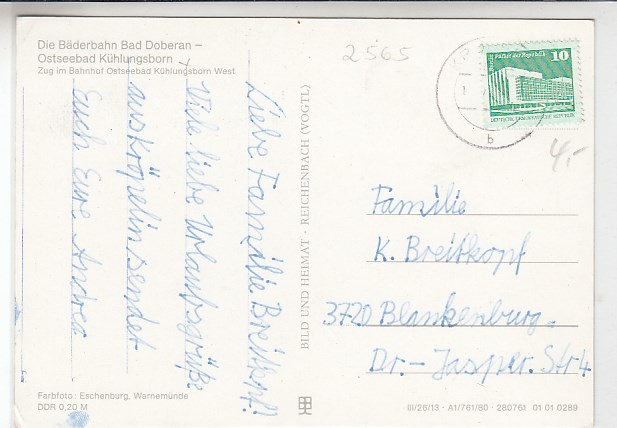 Die Bäderbahn Bad Doberan –
Ostseebad Kühlungsborn
Zug im Bahnhof Ostseebad Kühlungsborn West
Liebe Familie Breitkopf!
Viele liebe Urlaubsgrüße
aus Kröpelin sendet
Euch Eure Andrea
Farbfoto: Eschenburg, Warnemünde
DDR 0,20 M
BILD UND HEIMAT · REICHENBACH (VOGTL)
2565
Palast der Republik 10
DEUTSCHE DEMOKRATISCHE REPUBLIK
b
4,-
Familie
K. Breitkopf
3720 Blankenburg.
Dr.- Jasper. Str 4
III/26/13 · A1/761/80 · 280761 01 01 0289